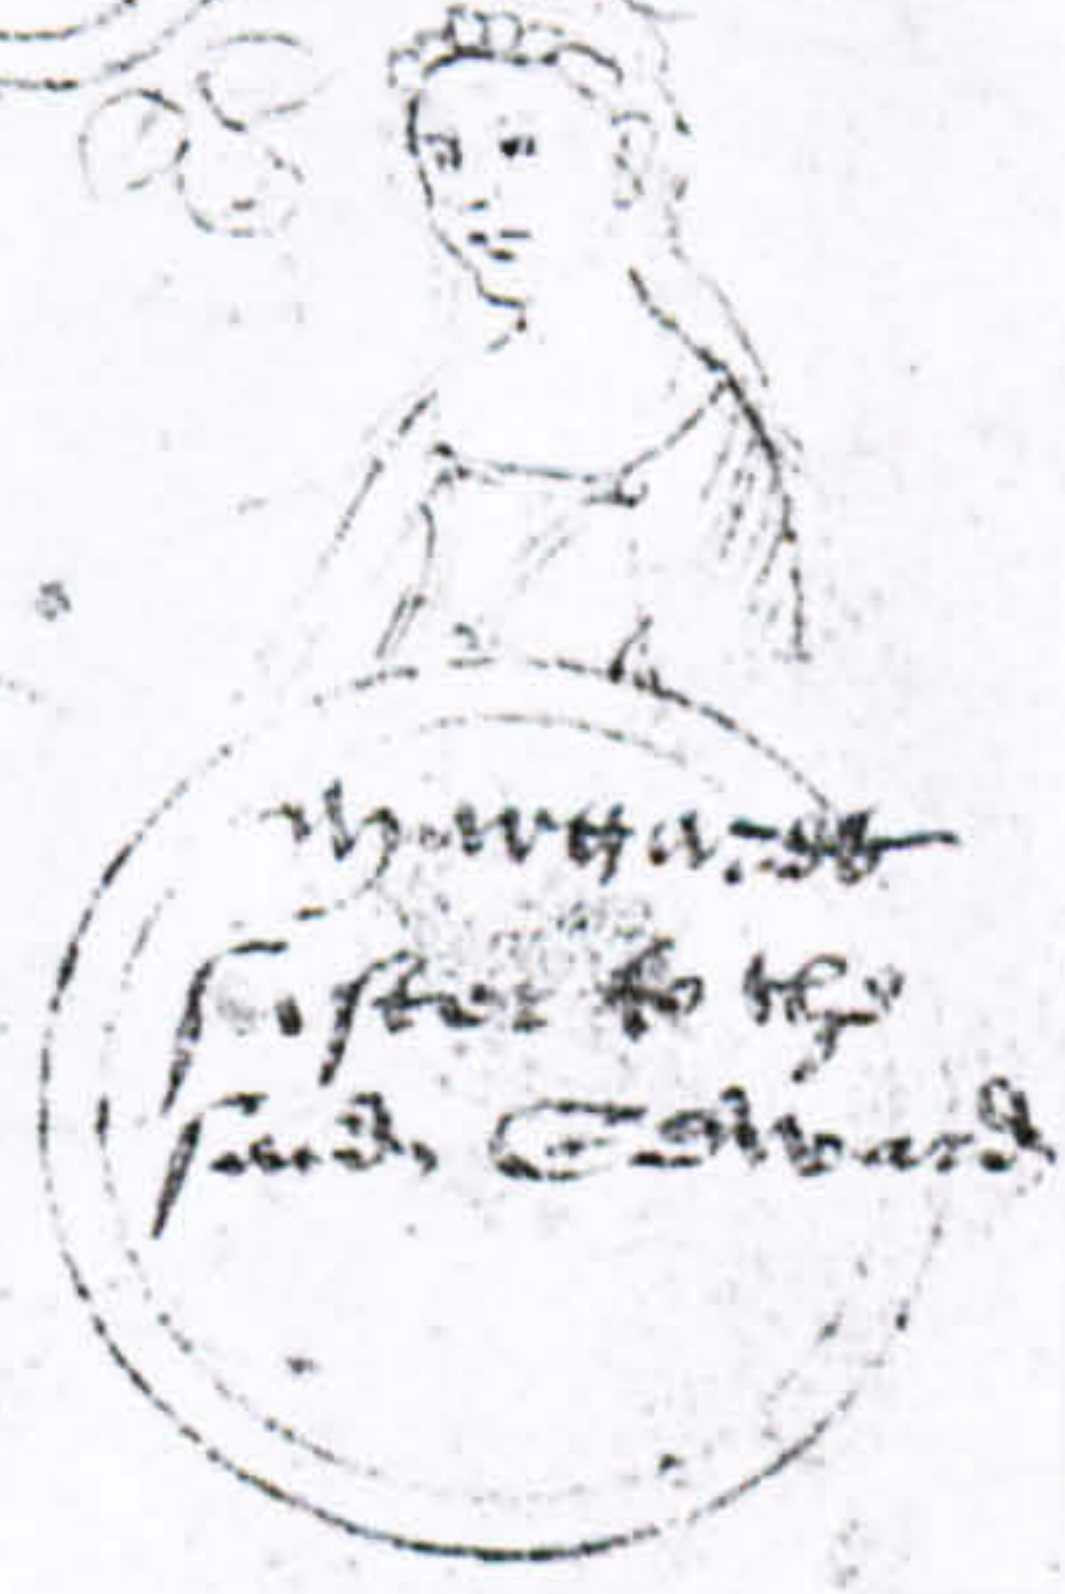 Margaret
sister to the
said Edward